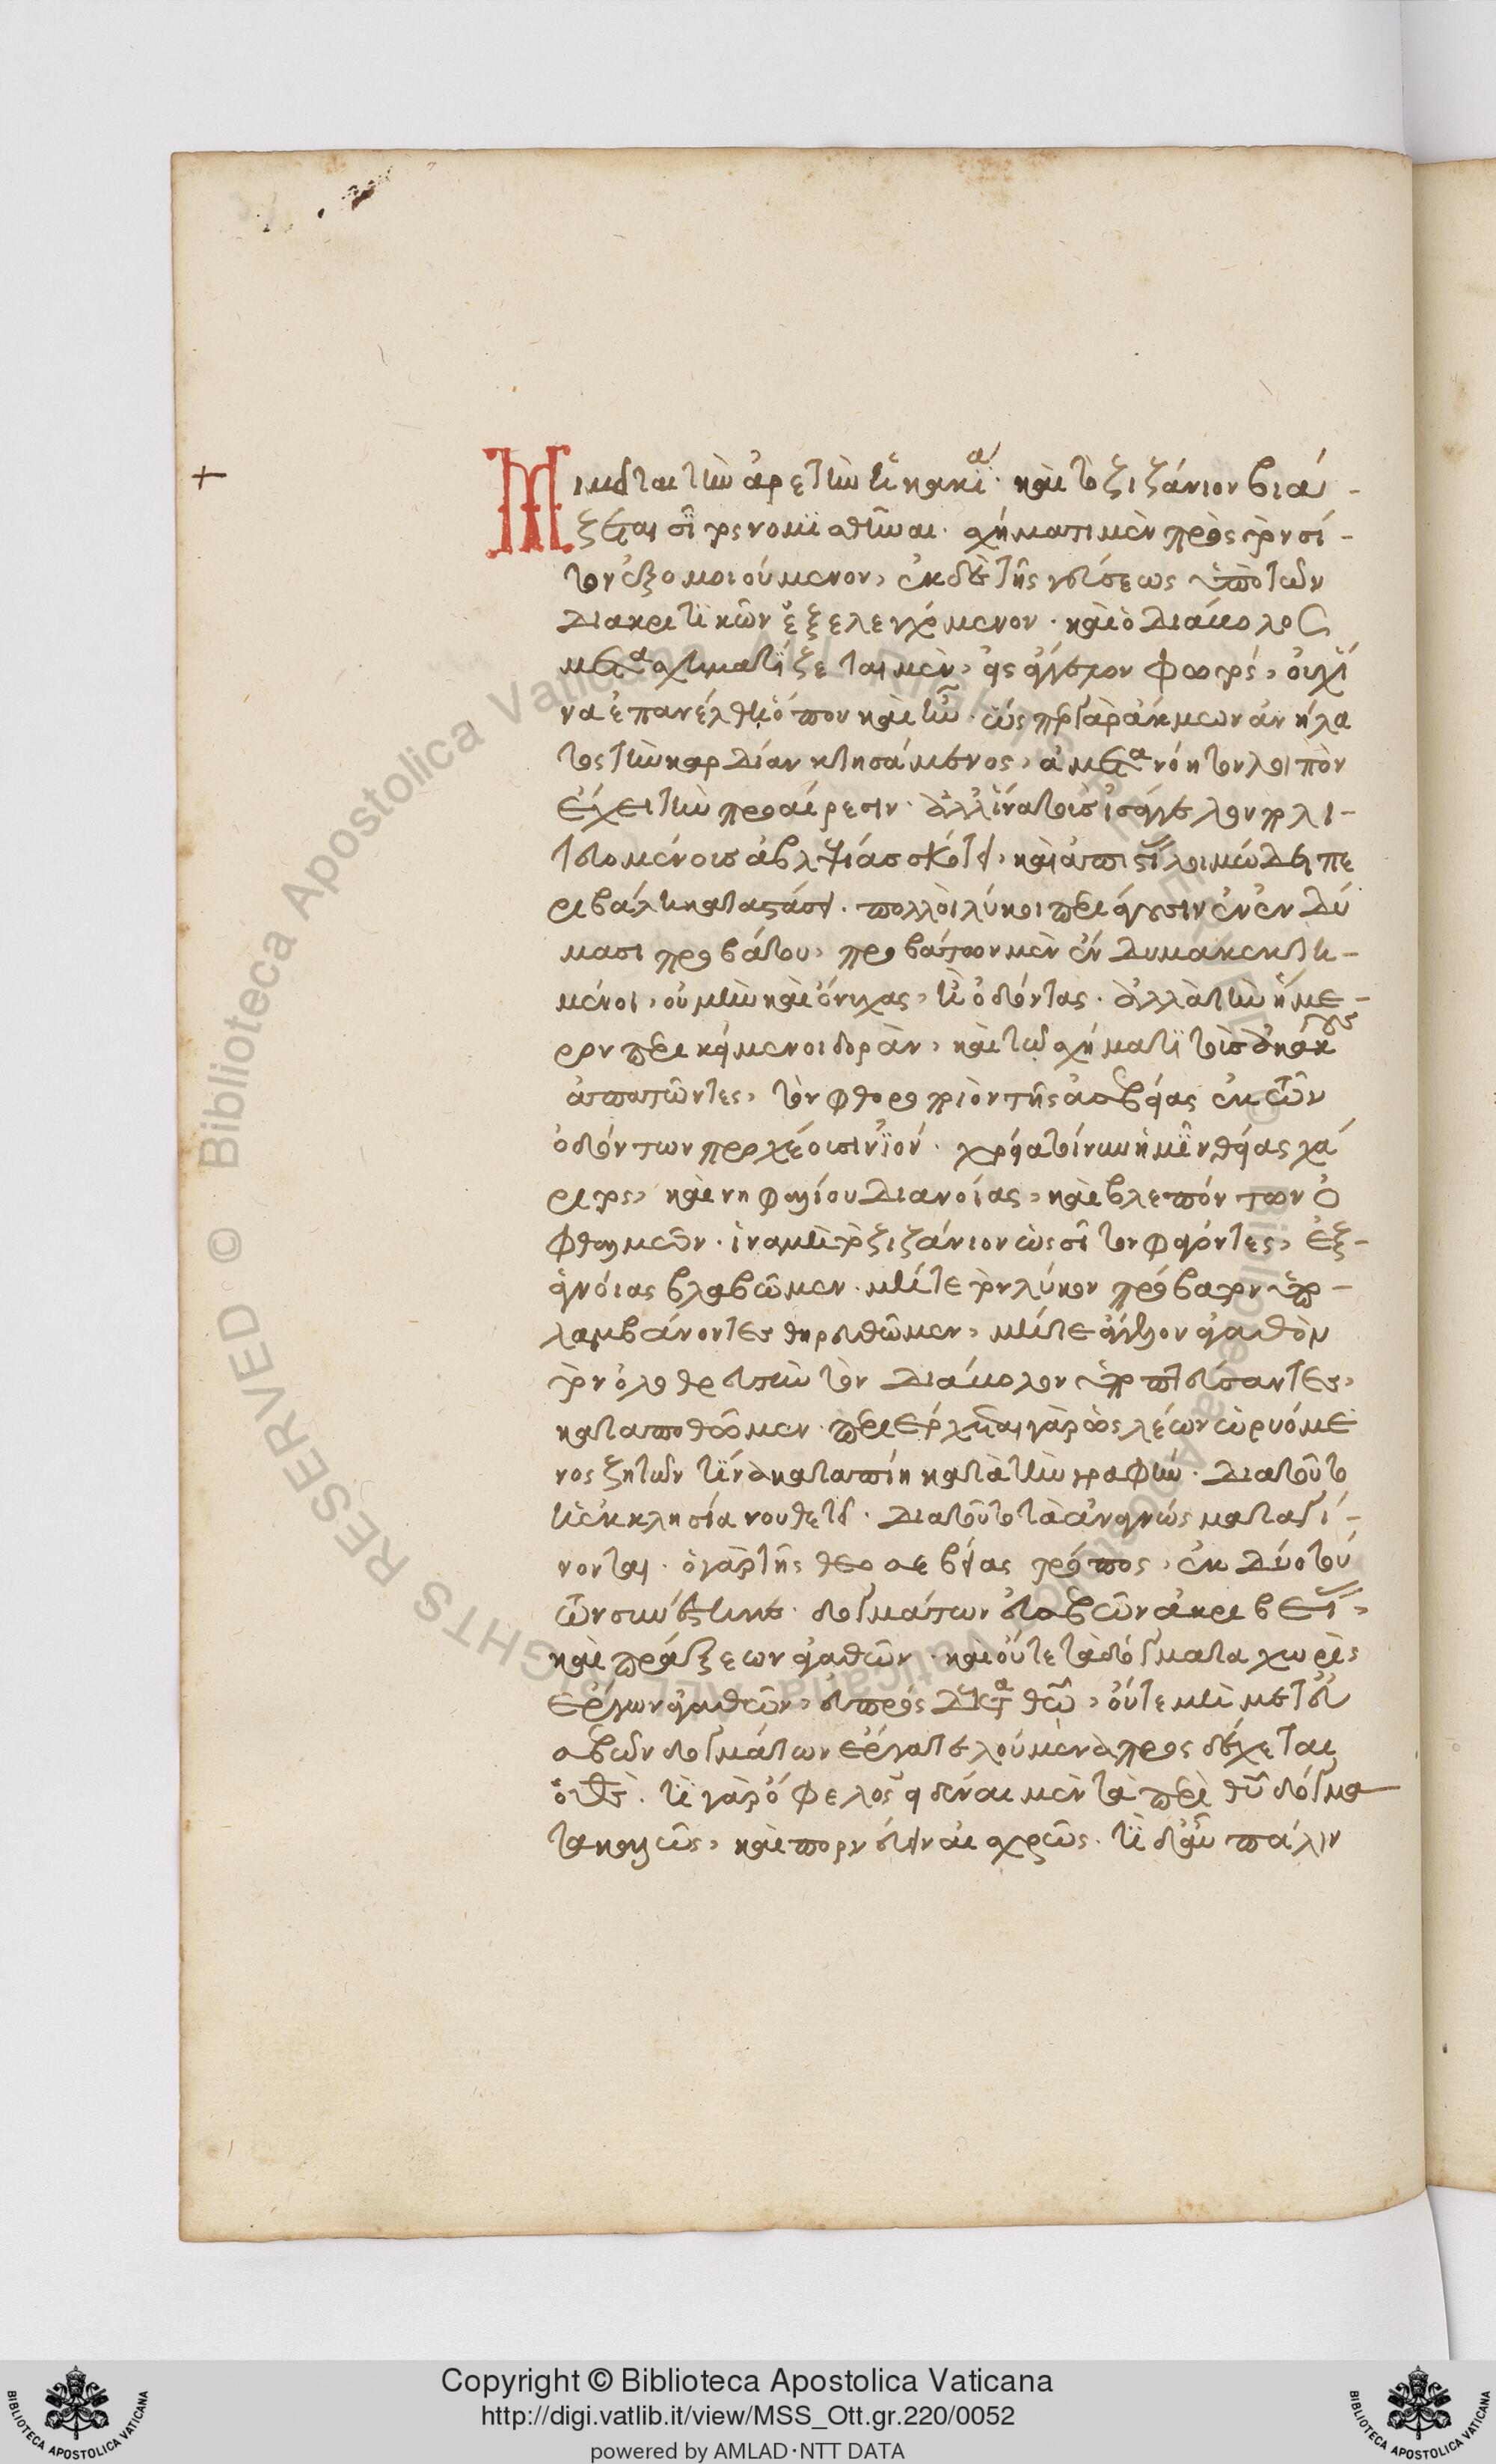 Μιμεῖται τὴν ἀρετὴν ἡ κακία· καὶ τὸ ζιζάνιον βιά-
ζεται σῖτος νομισθῆναι· σχήματι μὲν πρὸς τὸν σί-
τον ἐξομοιούμενον, ἐκ δὲ τῆς γεύσεως ὑπὸ τῶν
διακριτικῶν ἐξελεγχόμενον· καὶ ὁ διάβολος
μετασχηματίζεται μὲν, εἰς ἄγγελον φωτός, οὐχ ἵ
να ἐπανέλθη ὅπου καὶ ἦν· ὡς περ γὰρ ἄκμων ἀνήλα
τος τὴν καρδίαν κτησάμενος, ἀμετανόητον λοιπὸν
ἔχει τὴν προαίρεσιν· ἀλλ' ἵνα τοῖς ἰσάγγελον πολι-
τευομένοις ἀβλεψίας σκότει, καὶ ἀπιστίας λοιμώδει πε
ριβάλη καταστάσει. πολλοὶ λύκοι περιάγουσιν ἐν ἐνδύ
μασι προβάτου, προβάτων μὲν ἔνδυμα κεκτη-
μένοι, οὐ μὴν καὶ ὄνυχας, ἢ ὀδόντας· ἀλλὰ τὴν ἥμε-
ρον περικείμενοι δορὰν, καὶ τῷ σχήματι τοὺς ἀκάκους
ἀπατῶντες, τὸν φθοροποιὸν τῆς ἀσεβείας ἐκ τῶν
ὀδόντων προχέουσιν ἰόν· χρεία τοίνυν ἡμῖν θείας χά
ριτος, καὶ νηφαλίου διανοίας, καὶ βλεπόντων ὀ
φθαλμῶν· ἵνα μὴ τὸ ζιζάνιον ὡς σῖτον φαγόντες, ἐξ-
ἀγνοίας βλαβῶμεν· μήτε τὸν λύκον πρόβατον ὑπο-
λαμβάνοντες θηρευθῶμεν, μήτε ἄγγελον ἀγαθὸν
τὸν ὀλοθρευτὴν τὸν διάβολον ὑποπτεύσαντες,
καταποθῶμεν· περιέρχεται γὰρ ὡς λέων ὠρυόμε
νος ζητῶν τίνα καταπίη κατὰ τὴν γραφήν· διὰ τοῦτο
ἡ ἐκκλησία νουθετεῖ· διὰ τοῦτο τὰ ἀναγνώσματα γί-
νονται· ὁ γὰρ τῆς θεοσεβείας τρόπος, ἐκ δύο τού
των συνέστηκε· δογμάτων εὐσεβῶν ἀκριβείας,
καὶ πράξεων ἀγαθῶν· καὶ οὔτε τὰ δόγματα χωρὶς
ἔργων ἀγαθῶν, εὐπρόσδεκτα θεῷ, οὔτε μὴ μετ' εὐ
σεβῶν δογμάτων ἔργα τελούμενα προσδέχεται
ὁ θεός. τί γὰρ ὄφελος εἰδέναι μὲν τὰ περὶ θεοῦ δόγμα
τα καλῶς, καὶ πορνεύειν αἰσχρῶς· τί δ' αὖ πάλιν